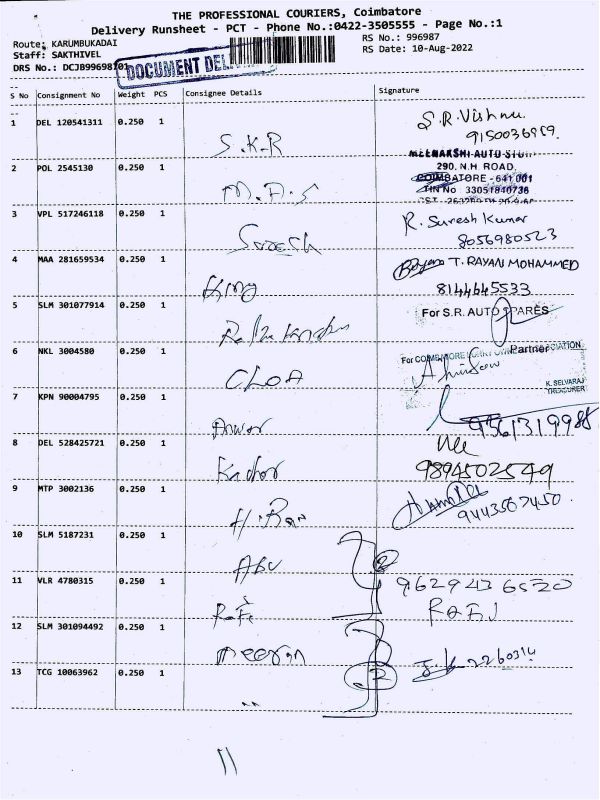 THE PROFESSIONAL COURIERS, Coimbatore
Delivery Runsheet - PCT - Phone No.:0422-3505555 - Page No.:1
Route: KARUMBUKADAI
RS No.: 996987
Staff: SAKTHIVEL
RS Date: 10-Aug-2022
DRS No.: DCJB99698
DOCUMENT DEL
S No Consignment No Weight PCS Consignee Details Signature
1 DEL 120541311 0.250 1 S.K.R S.R.Vishnu
2 POL 2545130 0.250 1 M.D.S
MEENAKSHI AUTO
290, N.H ROAD,
COIMBATORE - 641 001
TIN No 33051840736
3 VPL 517246118 0.250 1 Suresh R. Suresh Kumar
8056980523
4 MAA 281659534 0.250 1 T. RAYAN MOHAMMED
8144645533
5 SLM 301077914 0.250 1
For S.R. AUTO SPARES
Partner
6 NKL 3004580 0.250 1 CLOA
K. SELVARAJ
TREASURER
7 KPN 90004795 0.250 1 Anwar
8 DEL 528425721 0.250 1 Kadhar
9894502549
9 MTP 3002136 0.250 1
9443567450
10 SLM 5187231 0.250 1 Abu
11 VLR 4780315 0.250 1 Rafi
9629436520
RAFI
12 SLM 301094492 0.250 1 Meeran
13 TCG 10063962 0.250 1 "